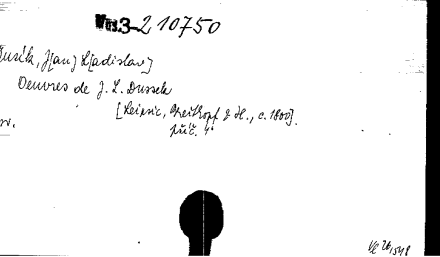 Mus3-210750
Dusík, J[an] L[adislav]
Oeuvres de J. L. Dussek
[Leipsic, Breitkopf & H., c. 1800].
příč. 4°